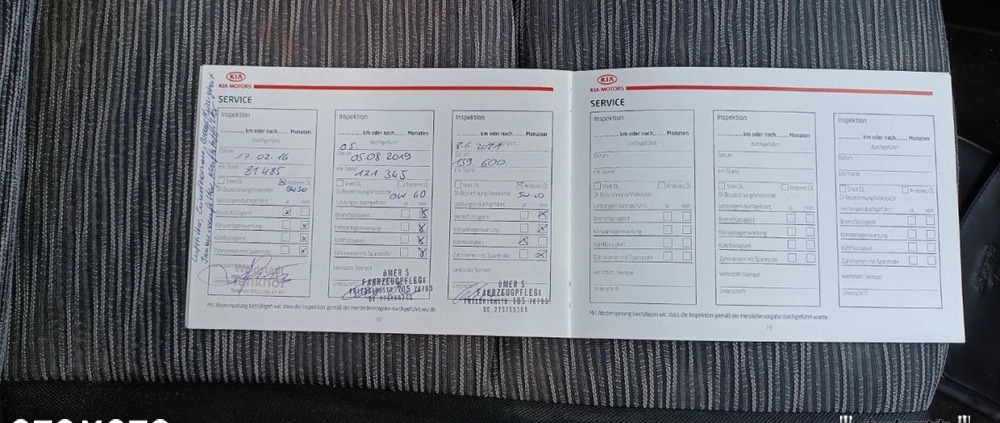 KIA
KIA MOTORS
SERVICE
Inspektion
km oder nach Monaten
durchgeführt
17.02.16
Datum
81485
km-Stand
Shell Öl Anderes Öl
Öl-Bezeichnung/Viskosität
5W30
Leistungen durchgeführt: ja nein
Bremsflüssigkeit
Klimaanlagenwartung
Kühlflüssigkeit
Zahnriemen mit Spannrolle
Inspektion
km oder nach Monaten
durchgeführt
05.08 2019
Datum
121 345
km-Stand
Shell Öl Anderes Öl
Öl-Bezeichnung/Viskosität
0W-40
Leistungen durchgeführt: ja nein
Bremsflüssigkeit
Klimaanlagenwartung
Kühlflüssigkeit
Zahnriemen mit Spannrolle
Werkstatt-Stempel
ÖMER S
FAHRZEUGPFLEGE
Inspektion
km oder nach Monaten
durchgeführt
Datum
139 600
km-Stand
Shell Öl Anderes Öl
Öl-Bezeichnung/Viskosität
Leistungen durchgeführt: ja nein
Bremsflüssigkeit
Klimaanlagenwartung
Kühlflüssigkeit
Zahnriemen mit Spannrolle
Werkstatt-Stempel
ÖMER S
FAHRZEUGPFLEGE
Mit Abstempelung bestätigen wir, dass die Inspektion gemäß der Herstellervorgabe durchgeführt wurde.
KIA
KIA MOTORS
SERVICE
Inspektion
km oder nach Monaten
durchgeführt
Datum
km-Stand
Shell Öl Anderes Öl
Öl-Bezeichnung/Viskosität
Leistungen durchgeführt: ja nein
Bremsflüssigkeit
Klimaanlagenwartung
Kühlflüssigkeit
Zahnriemen mit Spannrolle
Werkstatt-Stempel
Unterschrift
Inspektion
km oder nach Monaten
durchgeführt
Datum
km-Stand
Shell Öl Anderes Öl
Öl-Bezeichnung/Viskosität
Leistungen durchgeführt: ja nein
Bremsflüssigkeit
Klimaanlagenwartung
Kühlflüssigkeit
Zahnriemen mit Spannrolle
Werkstatt-Stempel
Unterschrift
Inspektion
km oder nach Monaten
durchgeführt
Datum
km-Stand
Shell Öl Anderes Öl
Öl-Bezeichnung/Viskosität
Leistungen durchgeführt: ja nein
Bremsflüssigkeit
Klimaanlagenwartung
Kühlflüssigkeit
Zahnriemen mit Spannrolle
Werkstatt-Stempel
Unterschrift
Mit Abstempelung bestätigen wir, dass die Inspektion gemäß der Herstellervorgabe durchgeführt wurde.